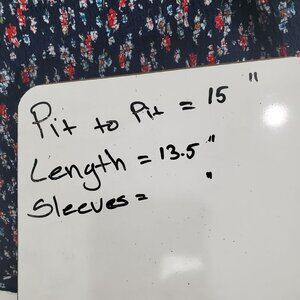 Pit to Pit = 15 "
Length = 13.5 "
Sleeves = "